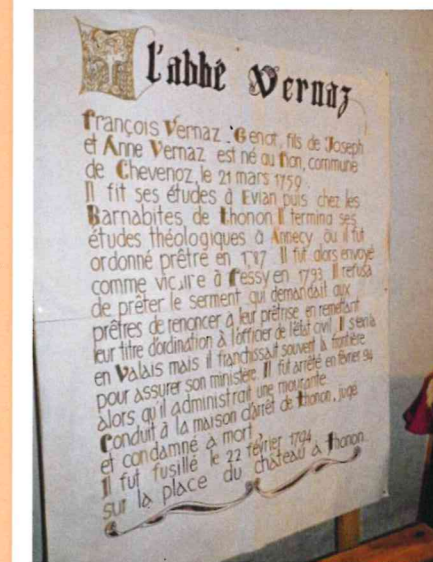 l'abbé Vernaz
François Vernaz-Genot, fils de Joseph
et Anne Vernaz est né au Fion, commune
de Chevenoz, le 21 mars 1759.
Il fit ses études à Evian puis chez les
Barnabites, de Thonon. Il termina ses
études théologiques à Annecy où il fut
ordonné prêtre en 1787. Il fut alors envoyé
comme vicaire à Fessy en 1793. Il refusa
de prêter le serment qui demandait aux
prêtres de renoncer à leur prêtrise en remettant
leur titre d'ordination à l'officier de l'état civil. Il
en Valais mais il franchissait souvent la frontière
pour assurer son ministère. Il fut arrêté en février 94
alors qu'il administrait une mourante.
Conduit à la maison d'arrêt de Thonon, jugé
et condamné à mort
Il fut fusillé le 22 février 1794
sur la place du château à Thonon